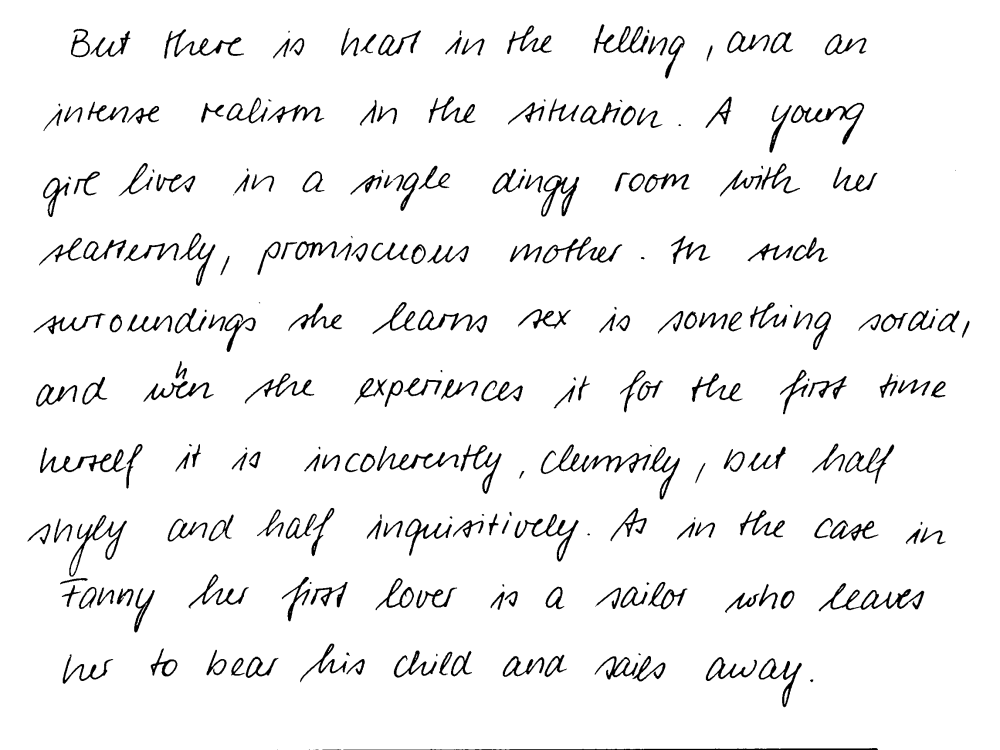 But there is heart in the telling, and an
intense realism in the situation. A young
girl lives in a single dingy room with her
slatternly, promiscuous mother. In such
surroundings she learns sex is something sordid,
and when she experiences it for the first time
herself it is incoherently, clumsily, but half
shyly and half inquisitively. As in the case in
Fanny her first lover is a sailor who leaves
her to bear his child and sails away.